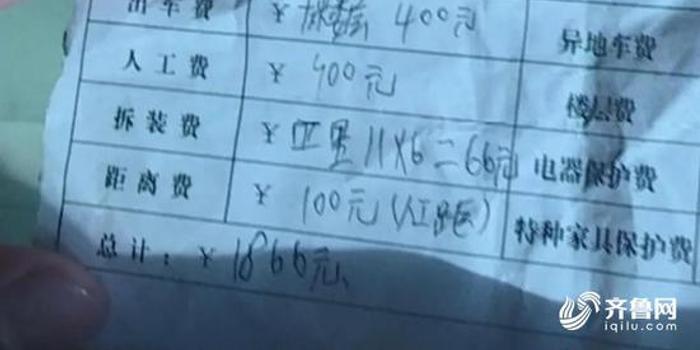 出车费 ¥ 400元 异地车费
人工费 ¥ 400元 楼层费
拆装费 ¥ 11×6=66元 电器保护费
距离费 ¥ 100元(人工距) 特种家具保护费
总计: ¥ 1866元
齐鲁网
iqilu.com